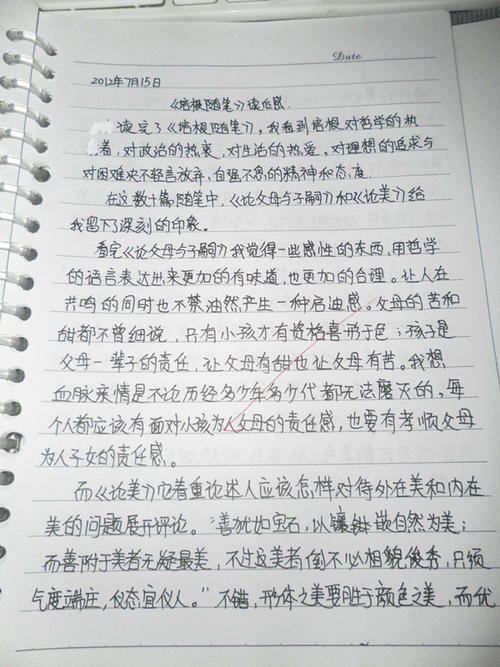 Date
2012年7月15日
《培根随笔》读后感.
读完了《培根随笔》,我看到培根对哲学的热
着,对政治的热衷,对生活的热爱,对理想的追求与
对困难决不轻言放弃,自强不息的精神和态度
在这数十篇随笔中,《论父母与子嗣》和《论美》给
我留下了深刻的印象。
看完《论父母与子嗣》我觉得一些感性的东西,用哲学
的语言表达出来更加的有味道,也更加的合理。让人在
共鸣的同时也不禁油然产生一种启迪感。父母的苦和
甜都不曾细说,只有小孩才有资格喜形于色;孩子是
父母一辈子的责任,让父母有甜也让父母有苦。我想
血脉亲情是不论历经多少年多少代都无法磨灭的,每
个人都应该有面对小孩为人父母的责任感,也要有孝顺父母
为人子女的责任感。
而《论美》它着重论述人应该怎样对待外在美和内在
美的问题展开评论。"善犹如宝石,以镶嵌自然为美;
而善附于美者无疑最美,不过这美者倒不必相貌俊秀,只须
气度端庄,仪态宜人。"不错,形体之美要胜于颜色之美,而优